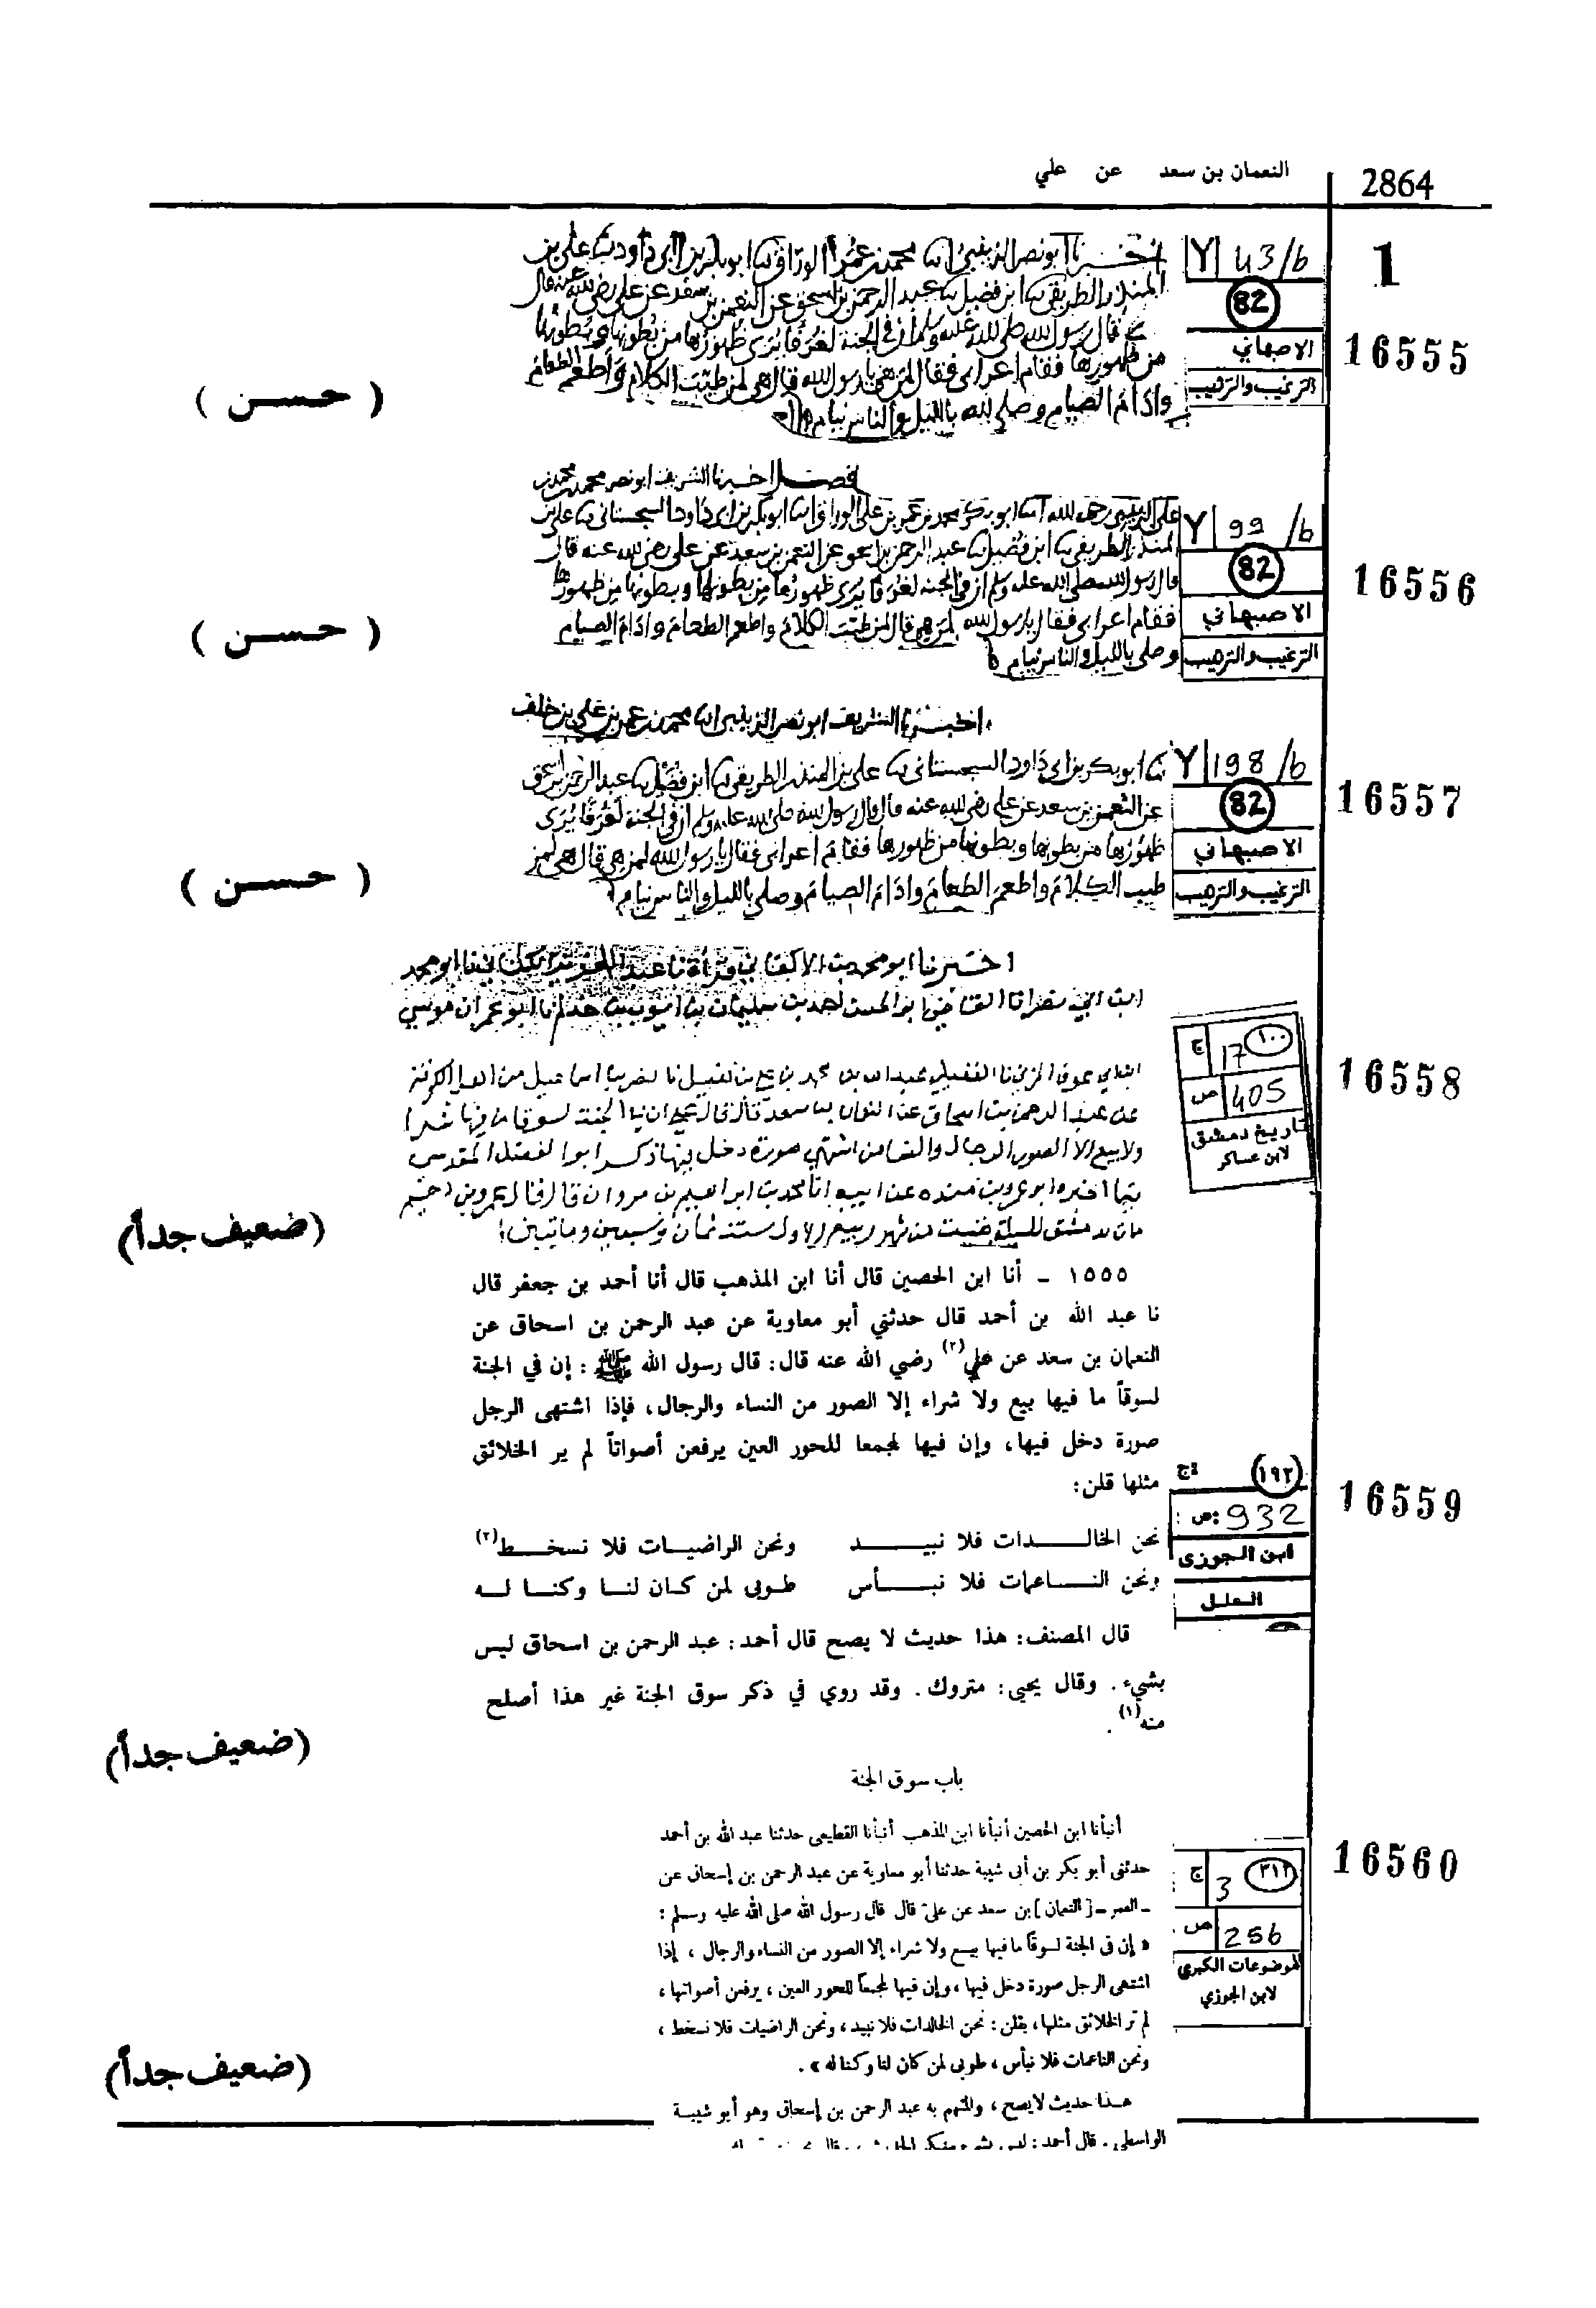 2864
النعمان بن سعد عن علي
1
Y 43/b
82
الاصبهاني
الترغيب والترهيب
16555
اخبرنا ابو نصر الزينبي انا محمد بن عمر الوراق ثنا ابو بكر بن ابي داود ثنا علي بن
المنذر الطريقي ثنا ابن فضيل ثنا عبد الرحمن بن اسحق عن النعمن بن سعد عن علي رضي الله عنه قال
قال رسول الله صلى الله عليه وسلم ان في الجنة لغرفا يرى ظهورها من بطونها وبطونها
من ظهورها فقام اعرابي فقال لمن هي يا رسول الله قال هي لمن طيب الكلام واطعم الطعام
وادام الصيام وصلى لله بالليل والناس نيام
( حسن )
Y 99/b
82
الاصبهاني
الترغيب والترهيب
16556
فصل اخبرنا الشريف ابو نصر محمد بن محمد بن
علي الزينبي رحمه الله انا ابو بكر محمد بن عمر بن علي الوراق ثنا ابو بكر بن ابي داود السجستاني ثنا علي بن
المنذر الطريقي ثنا ابن فضيل ثنا عبد الرحمن بن اسحق عن النعمن بن سعد عن علي رضي الله عنه قال
قال رسول الله صلى الله عليه وسلم ان في الجنة لغرفا يرى ظهورها من بطونها وبطونها من ظهورها
فقام اعرابي فقال يا رسول الله لمن هي قال لمن طيب الكلام واطعم الطعام وادام الصيام
وصلى بالليل والناس نيام
( حسن )
Y 198/b
82
الاصبهاني
الترغيب والترهيب
16557
اخبرنا الشريف ابو نصر الزينبي انا محمد بن عمر بن علي بن خلف
ثنا ابو بكر بن ابي داود السجستاني ثنا علي بن المنذر الطريقي ثنا ابن فضيل ثنا عبد الرحمن بن اسحق
عن النعمن بن سعد عن علي رضي الله عنه قال قال رسول الله صلى الله عليه وسلم ان في الجنة لغرفا يرى
ظهورها من بطونها وبطونها من ظهورها فقام اعرابي فقال يا رسول الله لمن هي قال هي لمن
طيب الكلام واطعم الطعام وادام الصيام وصلى بالليل والناس نيام
( حسن )
١٠٠ 17 ج
405 ص
تاريخ دمشق
لابن عساكر
16558
اخبرنا ابو محمد بن الاكفاني قراءة نا عبد العزيز الكتاني نا ابو محمد
ابن ابي نصر انا القاضي ابو الحسن احمد بن سليمان بن ايوب بن حذلم نا ابو عمران موسى
عن عبد الرحمن بن اسحاق عن النعمان بن سعد قال قال علي ان في الجنة لسوقا ما فيها شرا
ولا بيع الا الصور الرجال والنسا من اشتهى صورة دخل فيها ذكر ابو الفضل المقدسي
فيما اخبره ابو عمرو بن منده عن ابيه انا محمد بن ابراهيم بن مروان قال قال عمرو بن دحيم
مات بدمشق لليلة بقيت من شهر ربيع الاول سنة ثمان وتسعين وماتيين
(ضعيف جداً)
(١٩٢) ج:
ص: 932
ابن الجوزي
العلل
16559
١٥٥٥ - أنا ابن الحصين قال أنا ابن المذهب قال أنا أحمد بن جعفر قال
نا عبد الله بن أحمد قال حدثني أبو معاوية عن عبد الرحمن بن اسحاق عن
النعمان بن سعد عن علي(٢) رضي الله عنه قال: قال رسول الله ﷺ: إن في الجنة
لسوقاً ما فيها بيع ولا شراء إلا الصور من النساء والرجال، فإذا اشتهى الرجل
صورة دخل فيها، وإن فيها لمجمعا للحور العين يرفعن أصواتاً لم ير الخلائق
مثلها قلن:
نحن الخالدات فلا نبيد ونحن الراضيات فلا نسخط(٣)
ونحن الناعمات فلا نبأس طوبى لمن كان لنا وكنا له
قال المصنف: هذا حديث لا يصح قال أحمد: عبد الرحمن بن اسحاق ليس
بشيء. وقال يحيى: متروك. وقد روي في ذكر سوق الجنة غير هذا أصلح
منه(١).
(ضعيف جداً)
باب سوق الجنة
٣١٢ 3 ج
256 ص
الموضوعات الكبرى
لابن الجوزي
16560
أنبأنا ابن الحصين أنبأنا ابن المذهب أنبأنا القطيعى حدثنا عبد الله بن أحمد
حدثنى أبو بكر بن أبى شيبة حدثنا أبو معاوية عن عبد الرحمن بن إسحاق عن
ـ العمر ـ [ النعمان ] بن سعد عن علىّ قال قال رسول الله صلى الله عليه وسلم :
« إن فى الجنة لسوقاً ما فيها بيع ولا شراء إلا الصور من النساء والرجال ، إذا
اشتهى الرجل صورة دخل فيها ، وإن فيها لمجمعاً للحور العين ، يرفعن أصواتها ،
لم تر الخلائق مثلها ، يقلن : نحن الخالدات فلا نبيد ، ونحن الراضيات فلا نسخط ،
ونحن الناعمات فلا نبأس ، طوبى لمن كان لنا وكنا له » .
هذا حديث لا يصح ، والمتهم به عبد الرحمن بن إسحاق وهو أبو شيبة
الواسطى . قال أحمد : ليس بشىء منكر
(ضعيف جداً)